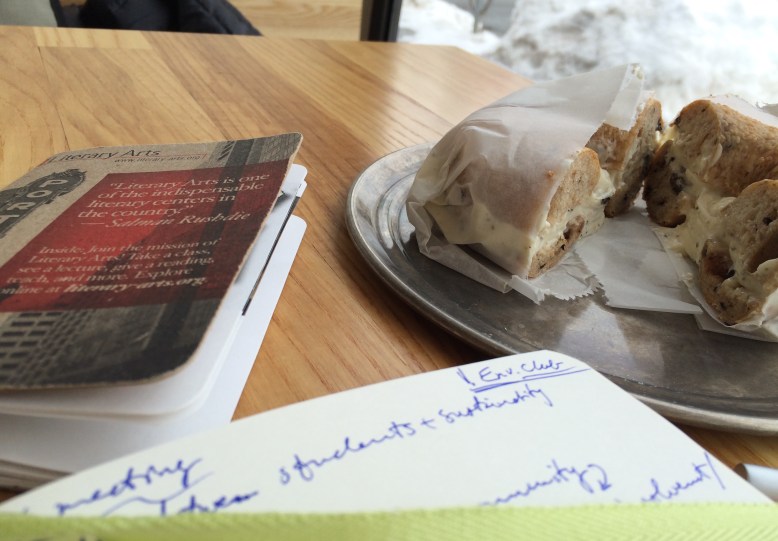 Literary Arts
www.literary-arts.org
PORT
"Literary Arts is one
of the indispensable
literary centers in
the country."
—Salman Rushdie
Inside: Join the mission of
Literary Arts! Take a class,
see a lecture, give a reading,
teach, and more. Explore
online at literary-arts.org
Env. Club
students + sustainability
meeting